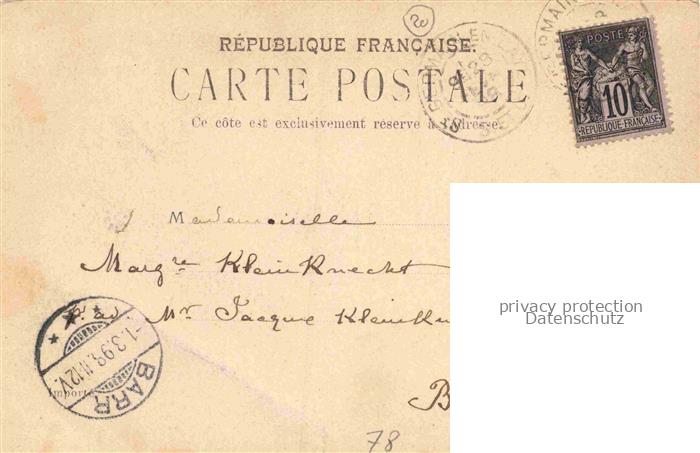 20
RÉPUBLIQUE FRANÇAISE.
CARTE POSTALE
Ce côté est exclusivement réservé à l'adresse.
POSTE
10
REPUBLIQUE FRANÇAISE
Mademoiselle
Margte KleinKnecht
p. ad. Mr Jacque KleinKn
-1.3.98.11-12V.
BARR
B
78
privacy protection
Datenschutz